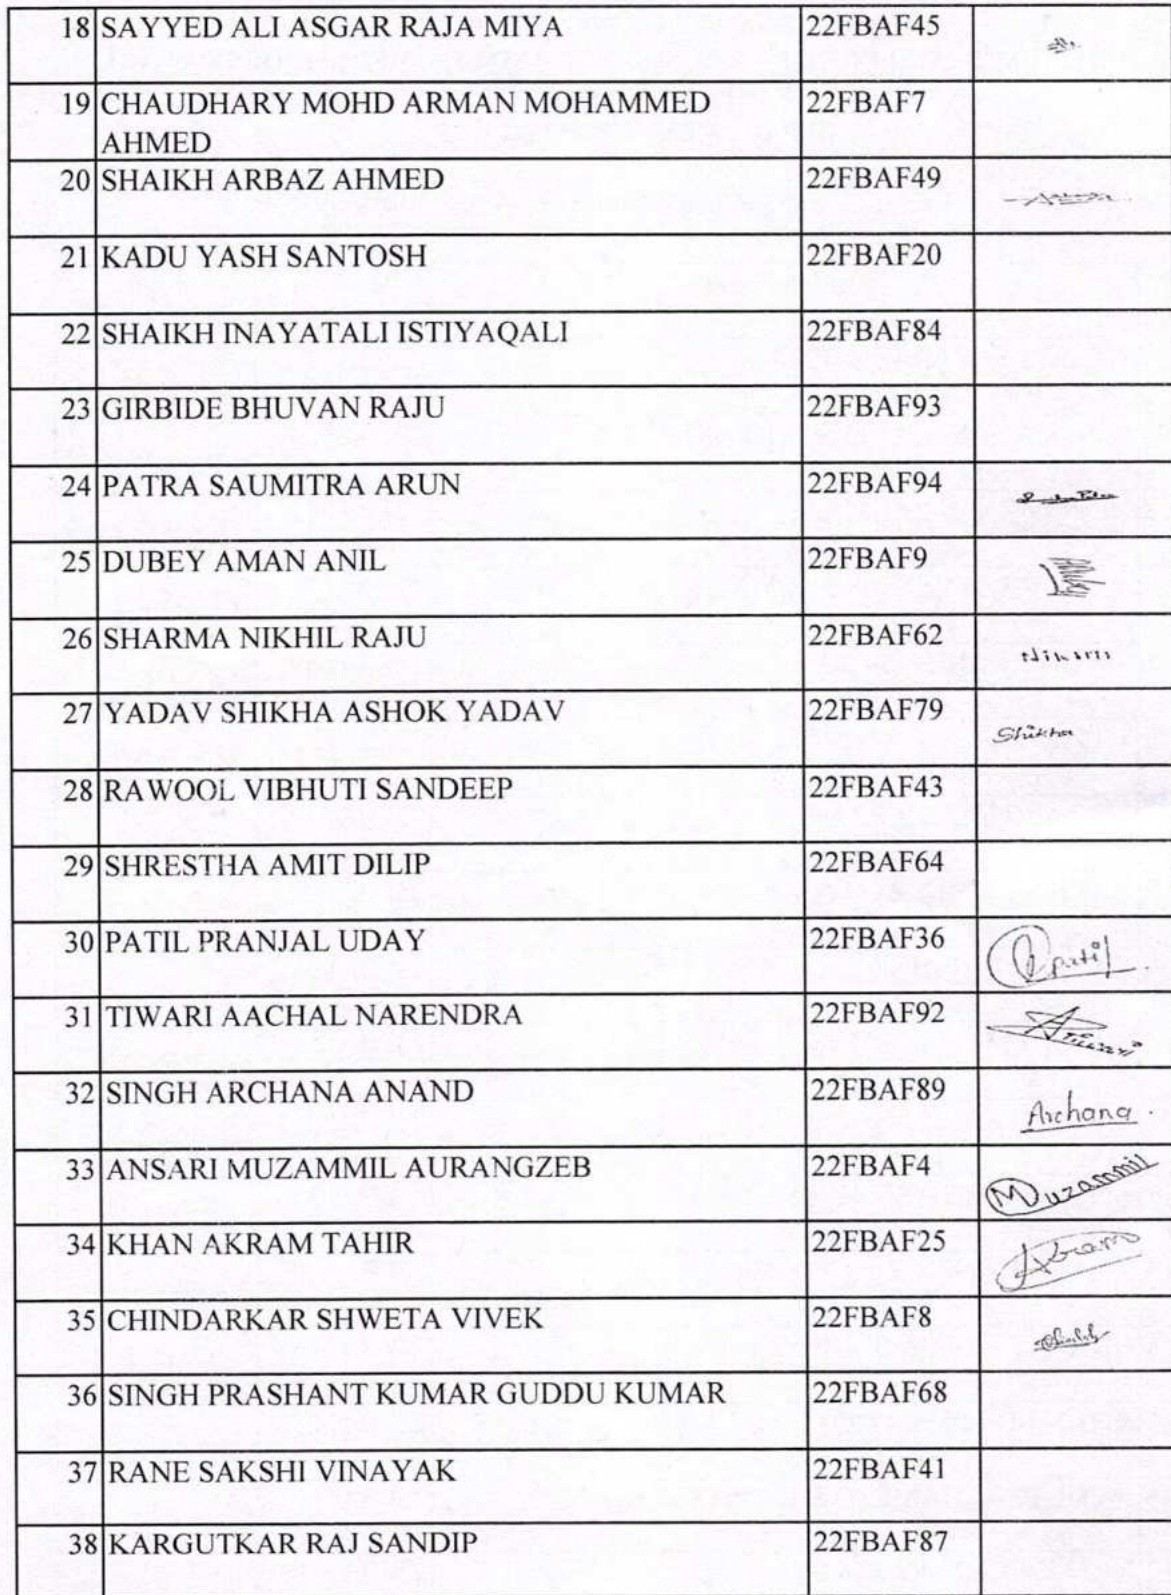 18 SAYYED ALI ASGAR RAJA MIYA 22FBAF45
19 CHAUDHARY MOHD ARMAN MOHAMMED 22FBAF7
AHMED
20 SHAIKH ARBAZ AHMED 22FBAF49
21 KADU YASH SANTOSH 22FBAF20
22 SHAIKH INAYATALI ISTIYAQALI 22FBAF84
23 GIRBIDE BHUVAN RAJU 22FBAF93
24 PATRA SAUMITRA ARUN 22FBAF94
25 DUBEY AMAN ANIL 22FBAF9
26 SHARMA NIKHIL RAJU 22FBAF62
27 YADAV SHIKHA ASHOK YADAV 22FBAF79 Shikha
28 RAWOOL VIBHUTI SANDEEP 22FBAF43
29 SHRESTHA AMIT DILIP 22FBAF64
30 PATIL PRANJAL UDAY 22FBAF36 Ppatil
31 TIWARI AACHAL NARENDRA 22FBAF92 ATiwari
32 SINGH ARCHANA ANAND 22FBAF89 Archana.
33 ANSARI MUZAMMIL AURANGZEB 22FBAF4 Muzammil
34 KHAN AKRAM TAHIR 22FBAF25 Akram
35 CHINDARKAR SHWETA VIVEK 22FBAF8
36 SINGH PRASHANT KUMAR GUDDU KUMAR 22FBAF68
37 RANE SAKSHI VINAYAK 22FBAF41
38 KARGUTKAR RAJ SANDIP 22FBAF87